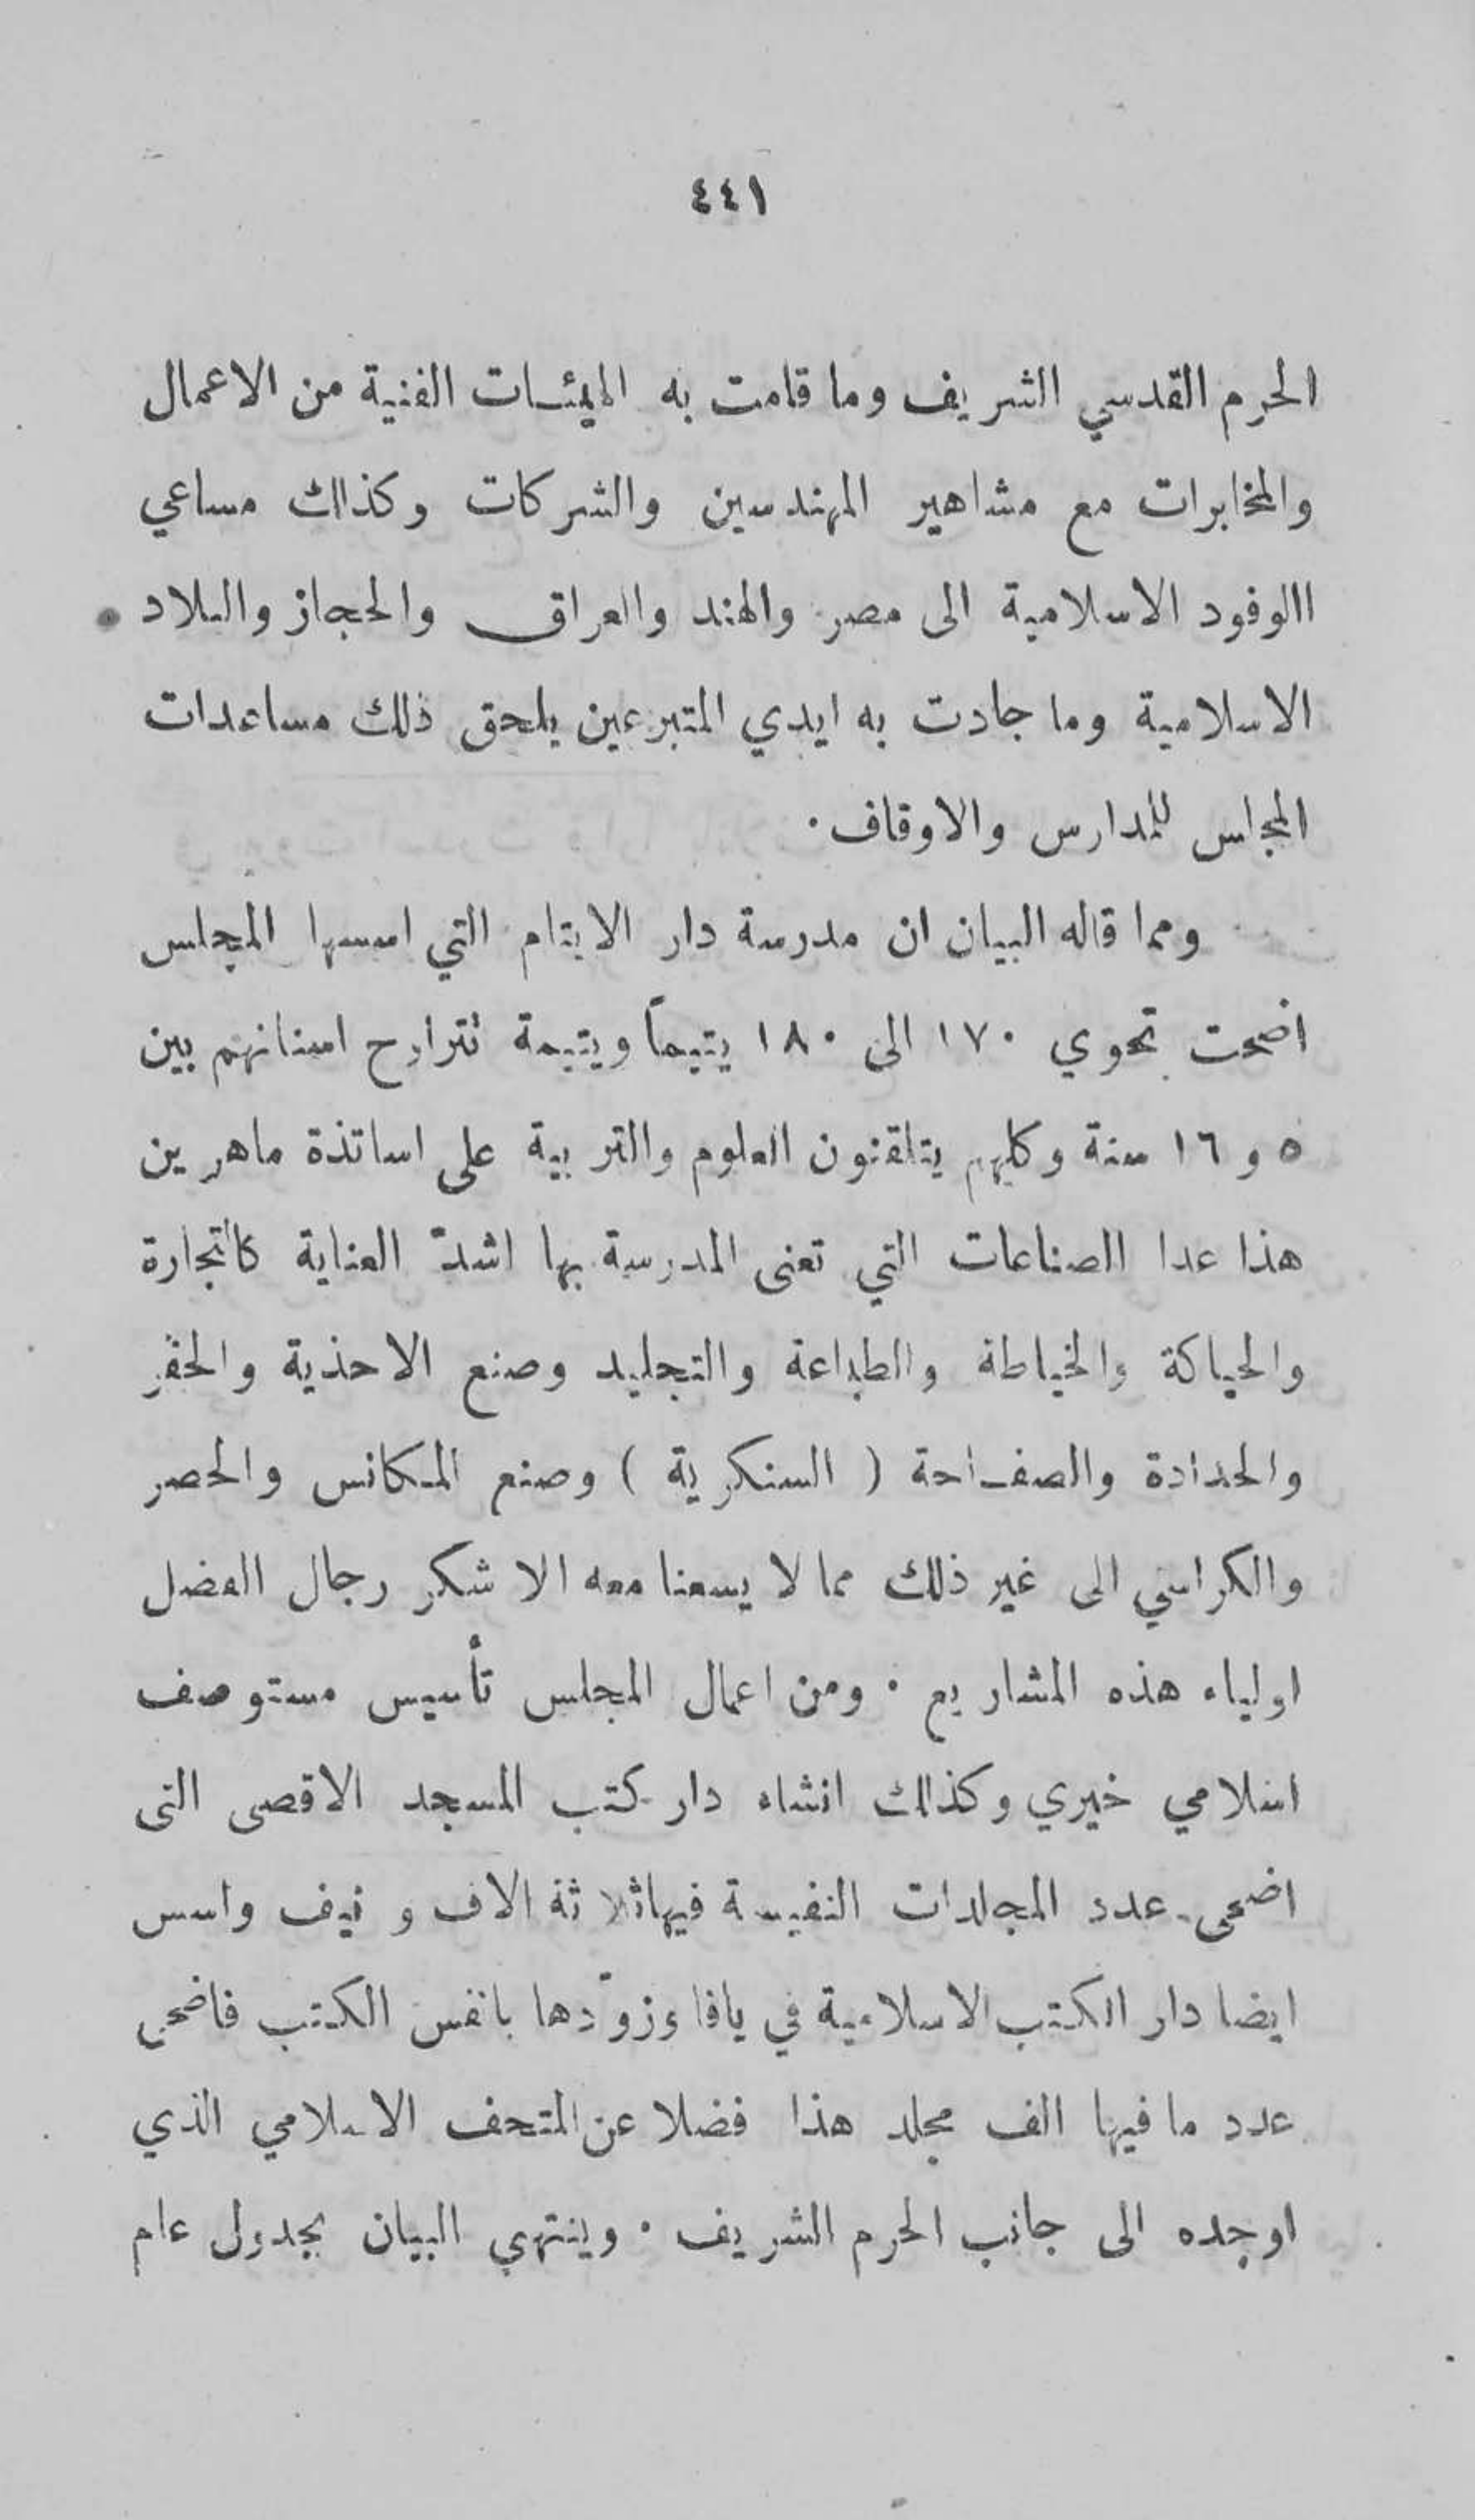 ٤٤١
الحرم القدسي الشريف وما قامت به الهيئات الفنية من الاعمال
والمخابرات مع مشاهير المهندسين والشركات وكذلك مساعي
االوفود الاسلامية الى مصر والهند والعراق والحجاز والبلاد
الاسلامية وما جادت به ايدي المتبرعين يلحق ذلك مساعدات
المجلس للمدارس والاوقاف ·
ومما قاله البيان ان مدرسة دار الايتام التي اسسها المجلس
اضحت تحوي ١٧٠ الى ١٨٠ يتيماً ويتيمة تتراوح اسنانهم بين
٥ و ١٦ سنة وكلهم يتلقنون العلوم والتربية على اساتذة ماهرين
هذا عدا الصناعات التي تعنى المدرسة بها اشدّ العناية كالنجارة
والحياكة والخياطة والطباعة والتجليد وصنع الاحذية والحفر
والحدادة والصفاحة ( السنكرية ) وصنع المكانس والحصر
والكراسي الى غير ذلك مما لا يسعنا معه الا شكر رجال الفضل
اولياء هذه المشاريع · ومن اعمال المجلس تأسيس مستوصف
اسلامي خيري وكذلك انشاء دار كتب المسجد الاقصى التى
اضحى عدد المجلدات النفيسة فيها ثلاثة الاف و نيف واسس
ايضا دار الكتب الاسلامية في يافا وزوّدها بانفس الكتب فاضحى
عدد ما فيها الف مجلد هذا فضلا عن المتحف الاسلامي الذي
اوجده الى جانب الحرم الشريف · وينتهي البيان بجدول عام